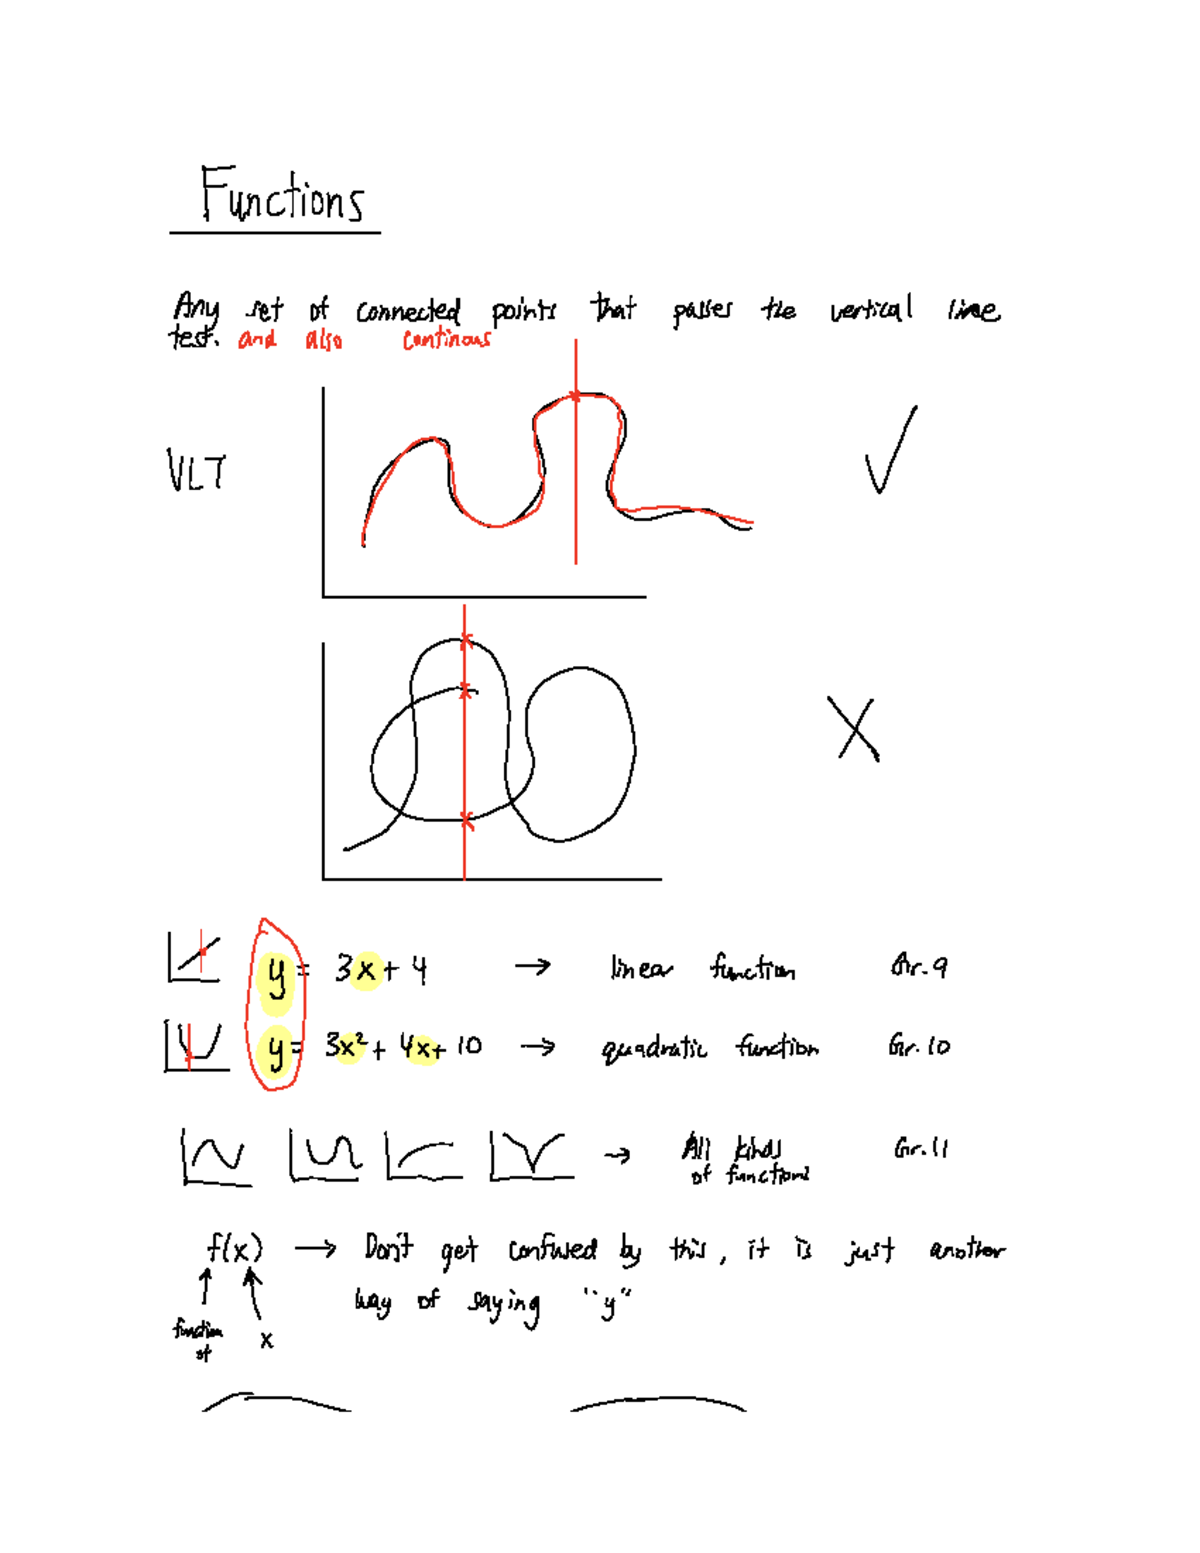 Functions
Any set of connected points that passes the vertical line
test. and also continous
VLT
y = 3x + 4 → linear function Gr. 9
y = 3x² + 4x + 10 → quadratic function Gr. 10
→ All kinds Gr. 11
of functions
f(x) → Don't get confused by this, it is just another
way of saying "y"
function
of
x